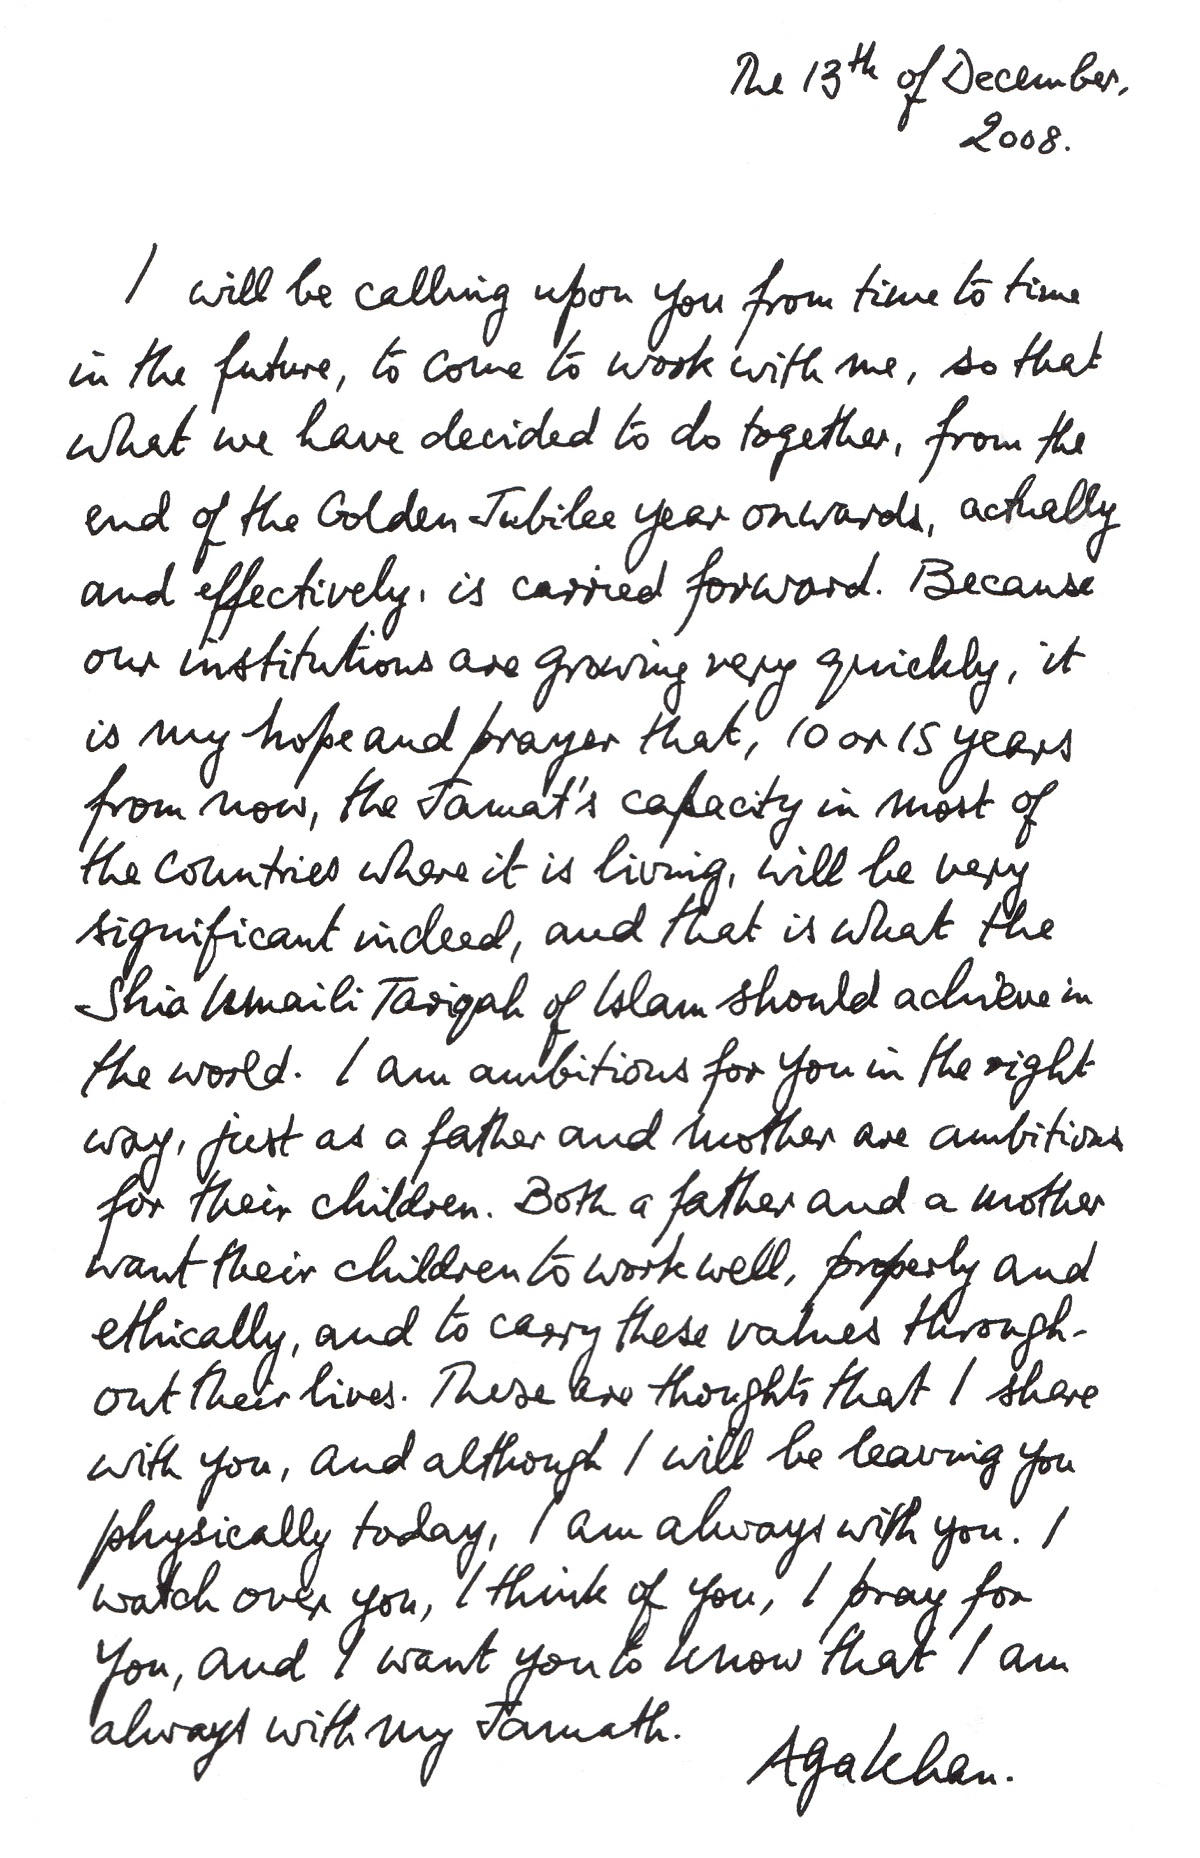 The 13th of December,
2008.
I will be calling upon you from time to time
in the future, to come to work with me, so that
what we have decided to do together, from the
end of the Golden Jubilee year onwards, actually
and effectively, is carried forward. Because
our institutions are growing very quickly, it
is my hope and prayer that, 10 or 15 years
from now, the Jamat's capacity in most of
the countries where it is living, will be very
significant indeed, and that is what the
Shia Ismaili Tariqah of Islam should achieve in
the world. I am ambitious for you in the right
way, just as a father and mother are ambitious
for their children. Both a father and a mother
want their children to work well, properly and
ethically, and to carry these values through-
out their lives. These are thoughts that I share
with you, and although I will be leaving you
physically today, I am always with you. I
watch over you, I think of you, I pray for
you, and I want you to know that I am
always with my Jamath.
Aga Khan.